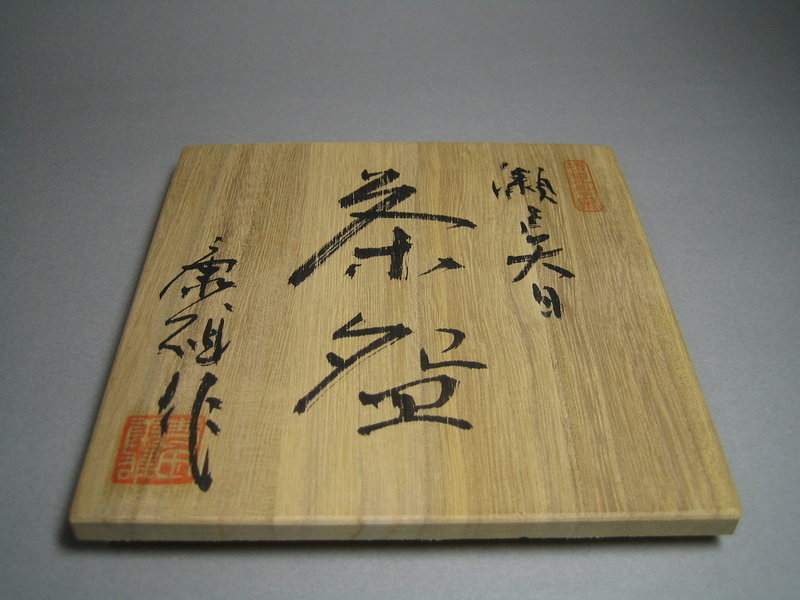 瀬戸天目
茶盌
康雄作